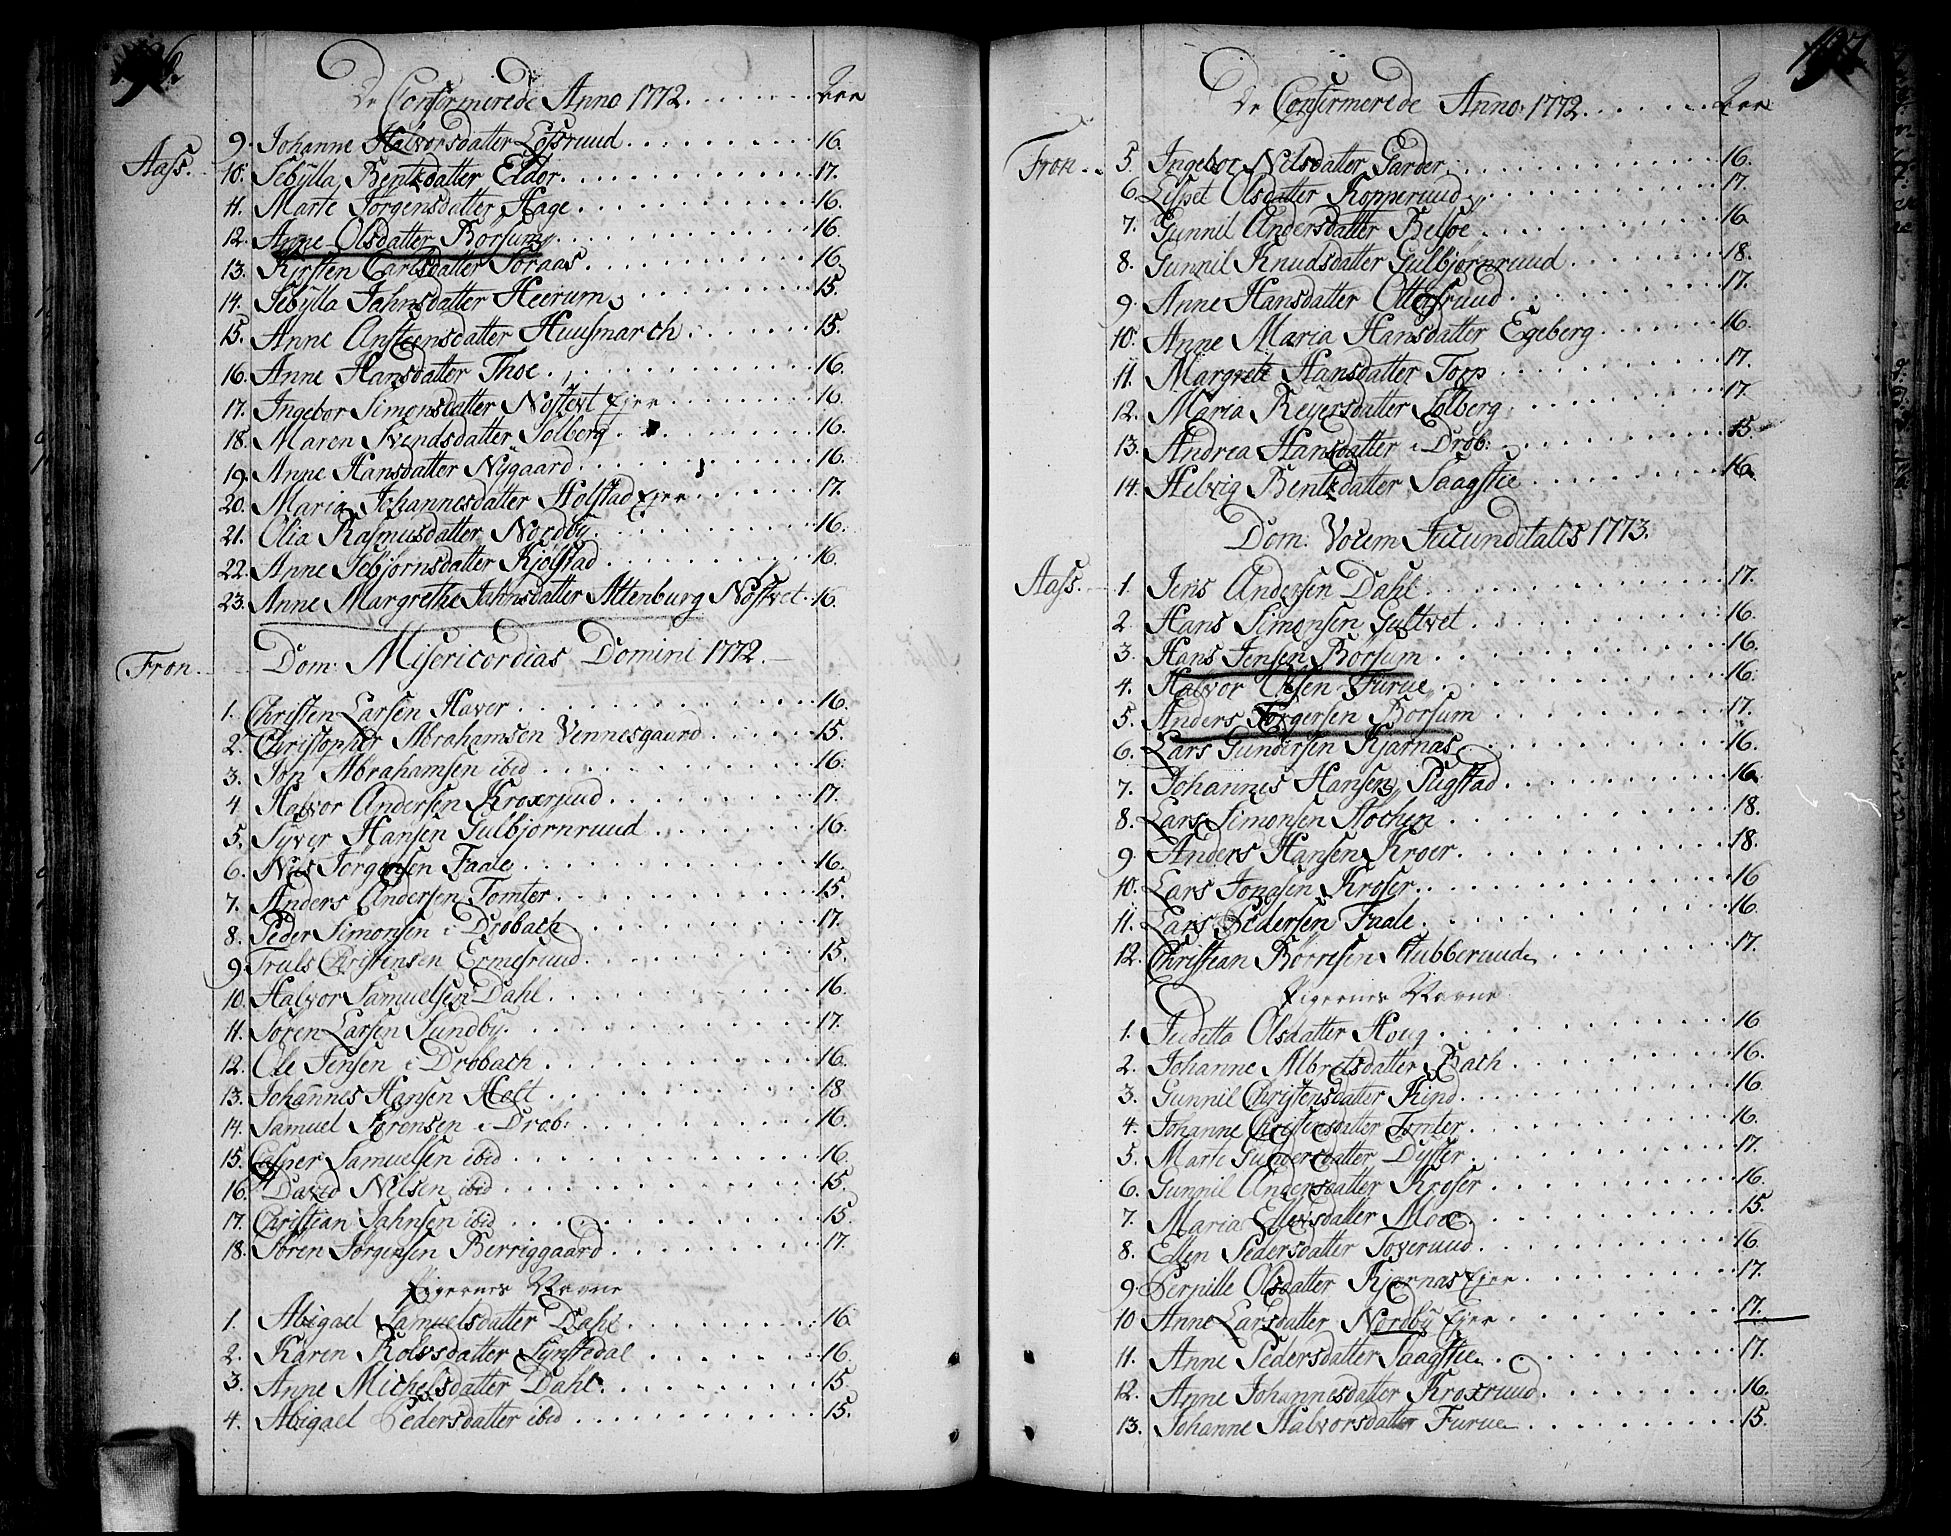 De Confirmerede Anno 1772.
Aass. 9. Johanne Halvorsdatter Lofsruud. 16.
10. Sebylla Bentzdatter Eldor. 17.
11. Marte Jorgensdatter Hage. 16.
12. Anne Olsdatter Borsum. 16.
13. Kirsten Carlsdatter Soraas. 16.
14. Sebylla Jahnsdatter Heerum. 15.
15. Anne Ansteensdatter Huusmarch. 15.
16. Anne Hansdatter Thoe. 16.
17. Ingebor Simonsdatter Nostevt Ejer 16.
18. Maren Svendsdatter Solberg. 16.
19. Anne Hansdatter Nygaard. 16.
20. Maria Johannesdatter Holstad Ejer 17.
21. Olia Rasmusdatter Nordby. 16.
22. Anne Sebjornsdatter Kjolstad 16.
23. Anne Margrethe Jahnsdatter Altenburg Nostvet. 16.
Fron. Dom: Misericordias Domini 1772.
1. Christen Larsen Haver 16.
2. Christopher Abrahamsen Vennesgaard 15.
3. Jon Abrahamsen ibid 16.
4. Halvor Andersen Kroxrjuud. 17.
5. Syver Hansen Gulbjornruud 16.
6. Niels Jorgensen Faale. 16.
7. Anders Andersen Tomter. 15.
8. Peder Simonsen i Drobach 17.
9. Truls Christensen Ermesruud. 15.
10. Halvor Samuelsen Dahl. 16.
11. Soren Larsen Sundby. 17.
12. Ole Jensen i Drobach 16.
13. Johannes Hansen Holt 18
14. Samuel Sorensen i Drob: 16.
15. Casper Samuelsen ibid 16.
16. David Nilsen ibid 15.
17. Christian Jahnsen ibid 15.
18. Soren Jorgensen Berriggaard. 17.
Pigernes Navne
1. Abigael Samuelsdatter Dahl. 16.
2. Karen Rolvsdatter 16.
3. Anne Michelsdatter Dahl. 15.
4. Abigael Pedersdatter ibid 15.
De Confirmerede Anno 1772.
Fron. 5. Ingebor Nilsdatter Garder. 16.
6. Lisset Olsdatter Kopperuud. 17.
7. Gunnil Andersdatter Belsoe 16.
8. Gunnil Knudsdatter Gulbjornruud 18.
9. Anne Hansdatter Ottersruud. 17.
10. Anne Maria Hansdatter Egeberg. 16.
11. Margrete Hansdatter Torp 17.
12. Maria Reyersdatter Solberg 17.
13. Andrea Hansdatter i Drob: 15.
14. Helvig Bentzdatter Saagstie 16.
Dom: Vocem Jucunditatis 1773.
Aass. 1. Jens Andersen Dahl. 17.
2. Hans Simonsen Gultvet. 16.
3. Hans Jensen Borsum 16.
4. Halvor Olsen Furue. 16.
5. Anders Torgersen Borsum 17.
6. Lars Gundersen Kjarnas 16.
7. Johannes Hansen Sugstad 16.
8. Lars Simonsen 18.
9. Anders Hansen Kroer. 18.
10. Lars Jonasen Kroser. 16.
11. Lars Pedersen Faale. 16.
12. Christian Borresen Stubberuud 17.
Pigernes Navne
1. Judetta Olsdatter Houg. 16
2. Johanne Albretsdatter Bach 16.
3. Gunnil Christensdatter Kind. 16
4. Johanne Christensdatter Tomter. 16.
5. Marte Gundersdatter Dyster. 17.
6. Gunnil Andersdatter Kroser 16.
7. Maria Ellevsdatter Moe. 15.
8. Ellen Pedersdatter Toveruud. 16.
9. Pernille Olsdatter Kjarnas Ejer 17.
10. Anne Larsdatter Nordby Ejer 17.
11. Anne Pedersdatter Saagstie. 17.
12. Anne Johannesdatter Kroxruud. 16.
13. Johanne Halvorsdatter Furue 15.